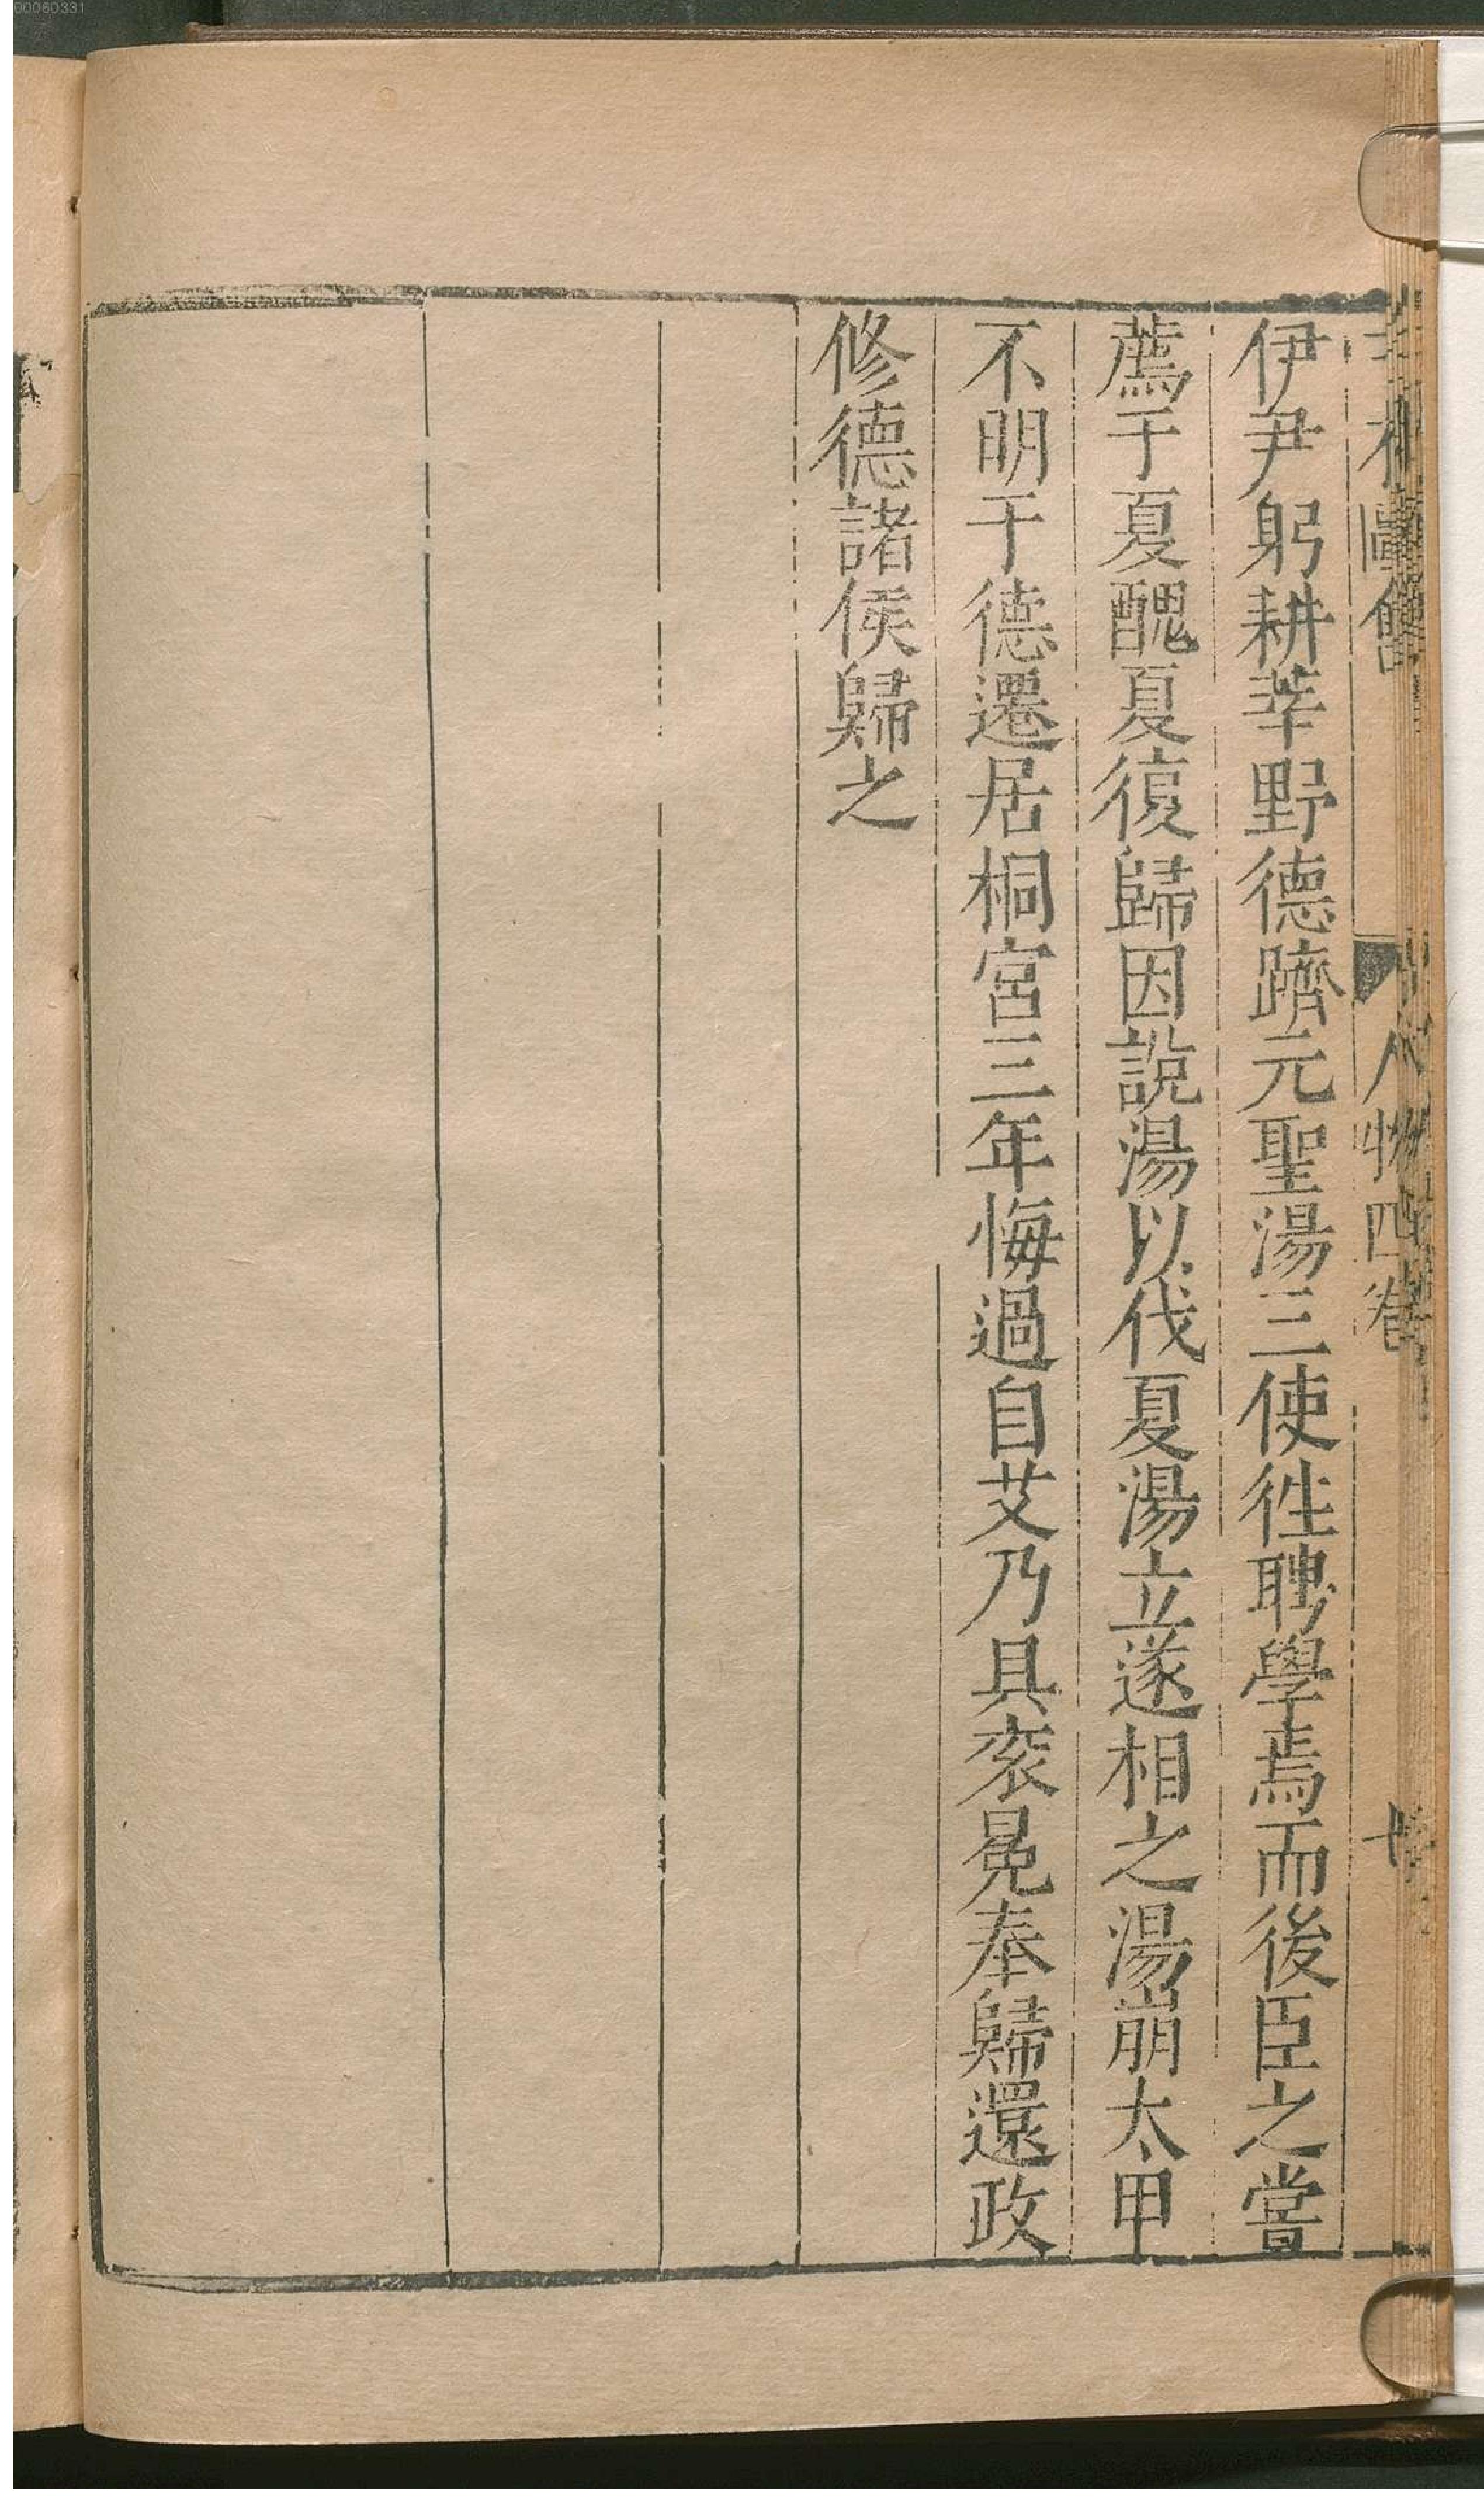 00060331
圖會
人物四卷
伊尹躬耕莘野德躋元聖湯三使徃聘學焉而後臣之嘗
薦于夏醜夏復歸因說湯以伐夏湯立遂相之湯崩太甲
不明于德遷居桐宮三年悔過自艾乃具衮冕奉歸還政
修德諸侯歸之